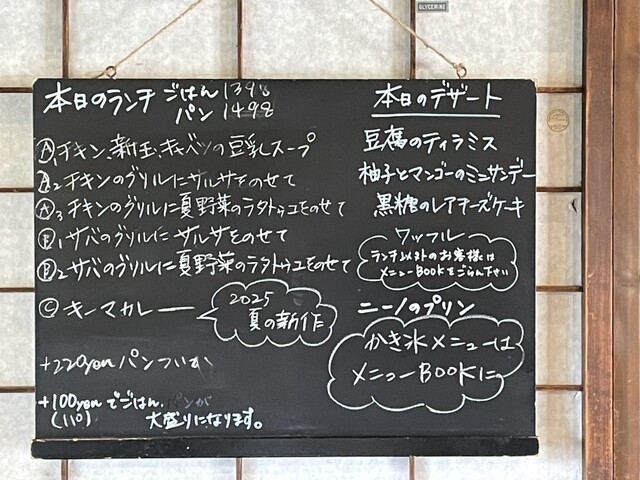 GLYCERINE
本日のランチ ごはん 1398
パン 1498
Ⓐ1 チキン、新玉、キャベツの豆乳スープ
Ⓐ2 チキンのグリルにサルサをのせて
Ⓐ3 チキンのグリルに夏野菜のラタトゥユをのせて
Ⓑ1 サバのグリルにサルサをのせて
Ⓑ2 サバのグリルに夏野菜のラタトゥユをのせて
Ⓒ キーマカレー
2025
夏の新作
+220yen パンついか
+100yen でごはん、パンが
(110) 大盛りになります。
本日のデザート
豆腐のティラミス
柚子とマンゴーのミニサンデー
黒糖のレアチーズケーキ
ワッフル
ランチ以外のお客様は
メニューBOOKをごらん下さい
ニーノのプリン
かき氷メニューは
メニューBOOKに